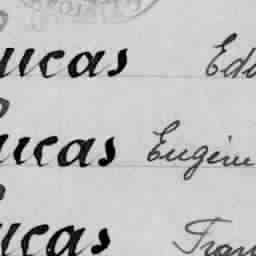 ucas Edu
ucas Eugène
ucas Fran